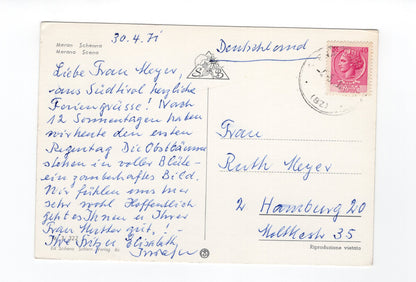 Meran Schenna
Merano Scena
30.4.71
Liebe Frau Meyer,
aus Südtirol herzliche
Feriengrüsse! Nach
12 Sonnentagen haben
wir heute den ersten
Regentag. Die Obstbäume
stehen in voller Blüte -
ein zauberhaftes Bild.
Wir fühlen uns hier
sehr wohl. Hoffentlich
geht es Ihnen u. Ihrer
Frau Mutter gut! -
Ihre
Elisabeth
Deutschland
Frau
Ruth Meyer
2 Hamburg 20
Moltkestr. 35
Riproduzione vietata